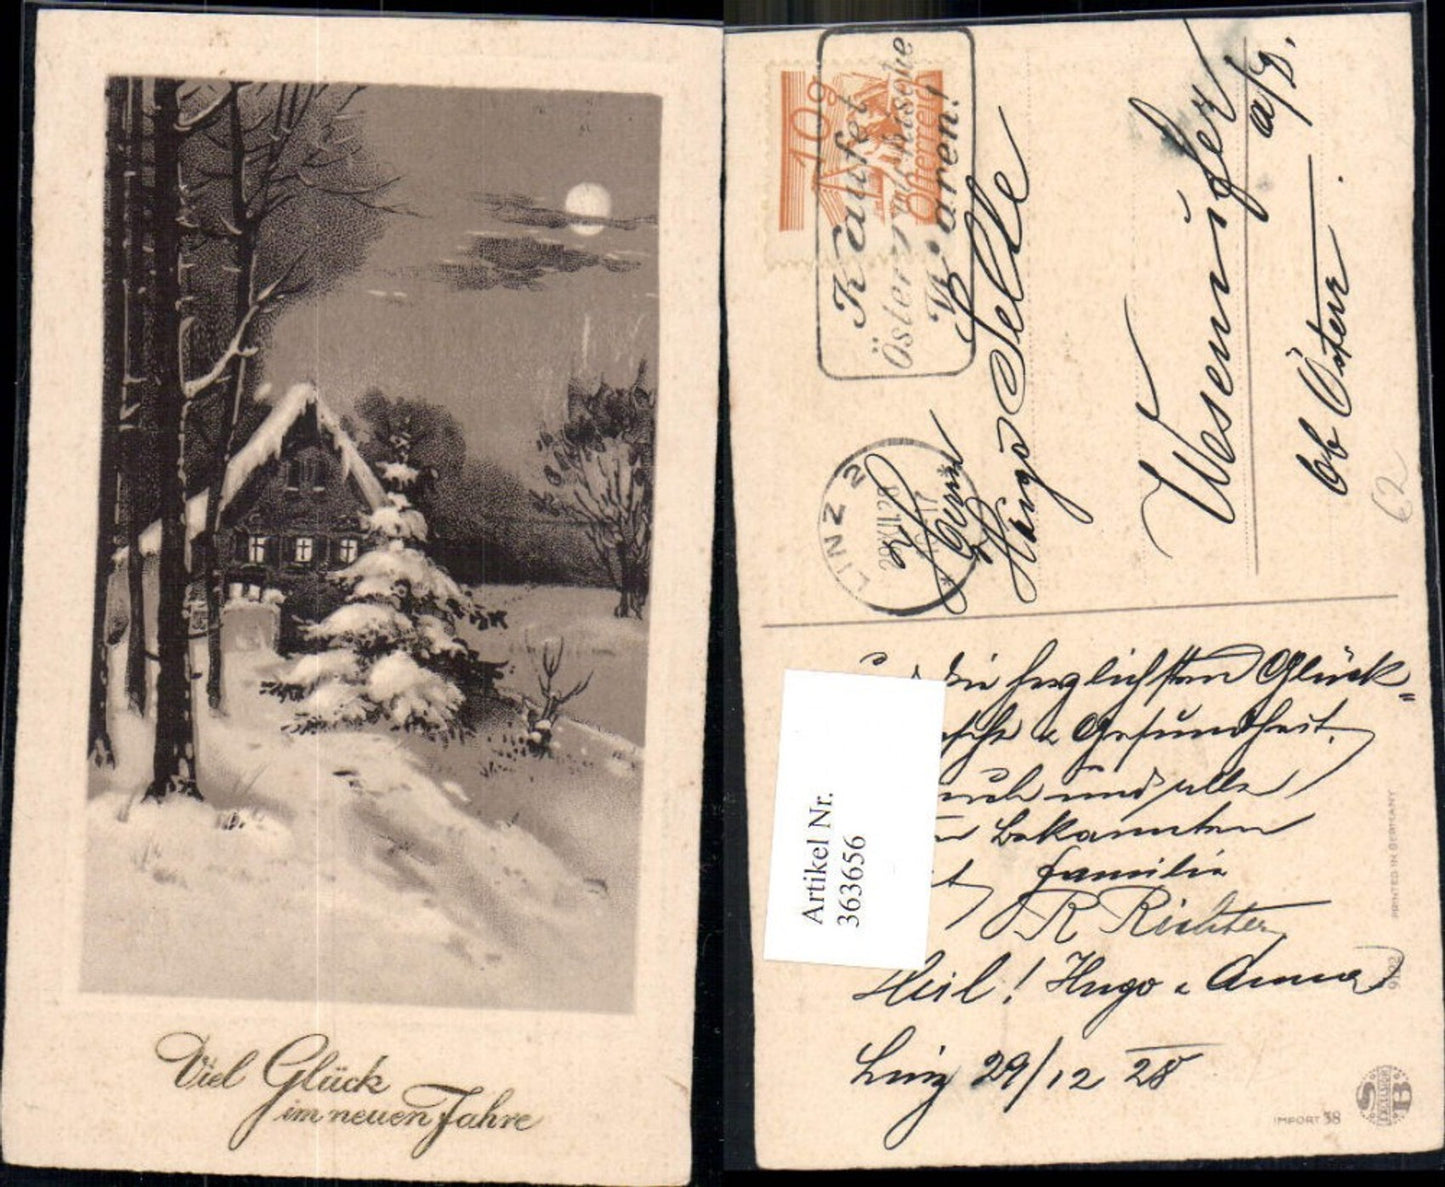 Viel Glück
im neuen Jahre
10g
Österreich
Kaufet
Österreichische
Waren!
LINZ 2
Herrn
Hugo Selle
Wesenufer
a/D.
Ob Österr.
62
Die herzlichsten Glück-
& Gesundheit.
auch und alle
Bekannten
Familie
R Richter
Heil! Hugo & Anna
Linz 29/12 28
Artikel Nr.
363656
PRINTED IN GERMANY
9192
IMPORT 38
S
B